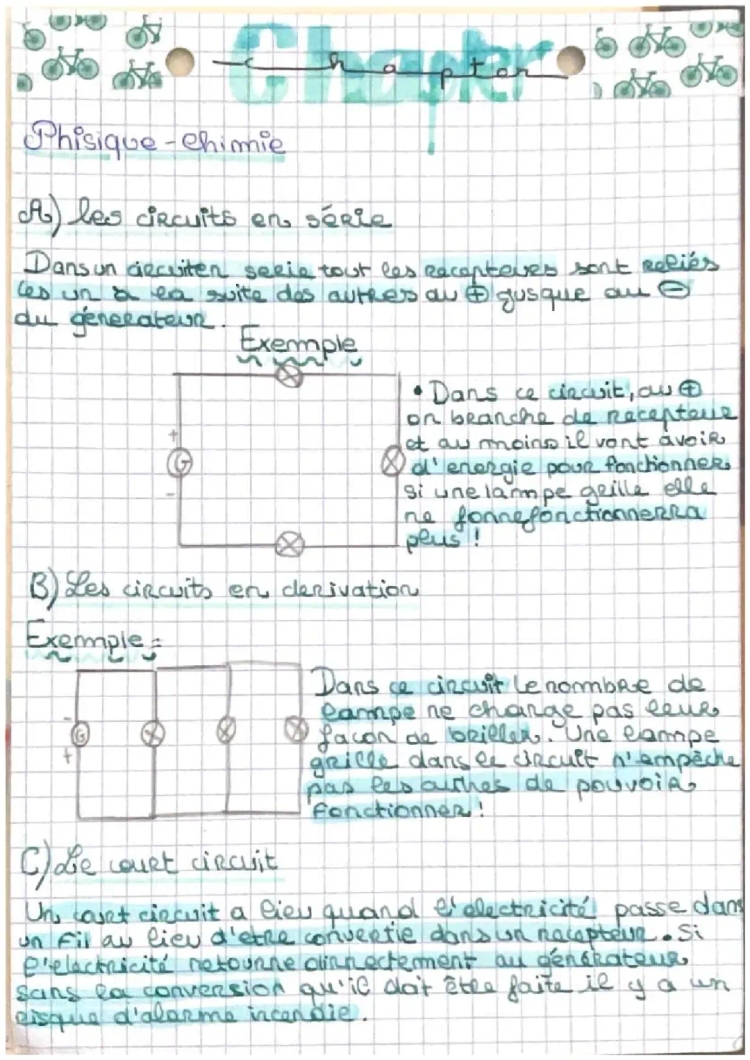 Chapter
chapter
Phisique-chimie
A) les circuits en série
Dans un circuit en serie tout les recepteurs sont reliés
les un à la suite des autres du ⊕ jusque au ⊖
du génerateur.
Exemple
+
G
-
• Dans ce circuit, au ⊕
on branche de recepteur
et au moins il vont avoir
d'energie pour fonctionner
si une lampe grille elle
ne fonnefonctionnerra
plus !
B) Les circuits en derivation
Exemple =
-
G
+
Dans ce circuit le nommbre de
lampe ne change pas leur
façon de briller. Une lampe
grille dans le circuit n'empêche
pas les autres de pouvoir
fonctionner !
C) Le court circuit
Un court circuit a lieu quand l'electricité passe dans
un fil au lieu d'etre convertie dans un recepteur. Si
l'electricité retourne dirrectement au générateur
sans la conversion qu'il doit être faite il y a un
risque d'alarme incendie.